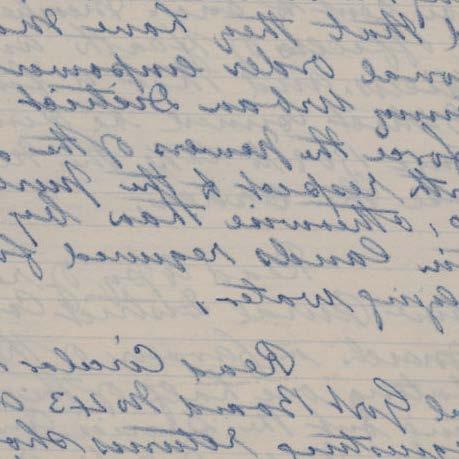 that they have
order empower
Urban District
force the powers of the
respect to the
, otherwise than by
in lands required f
lying water,
Read Circular
Govt Board No 43
returns sho